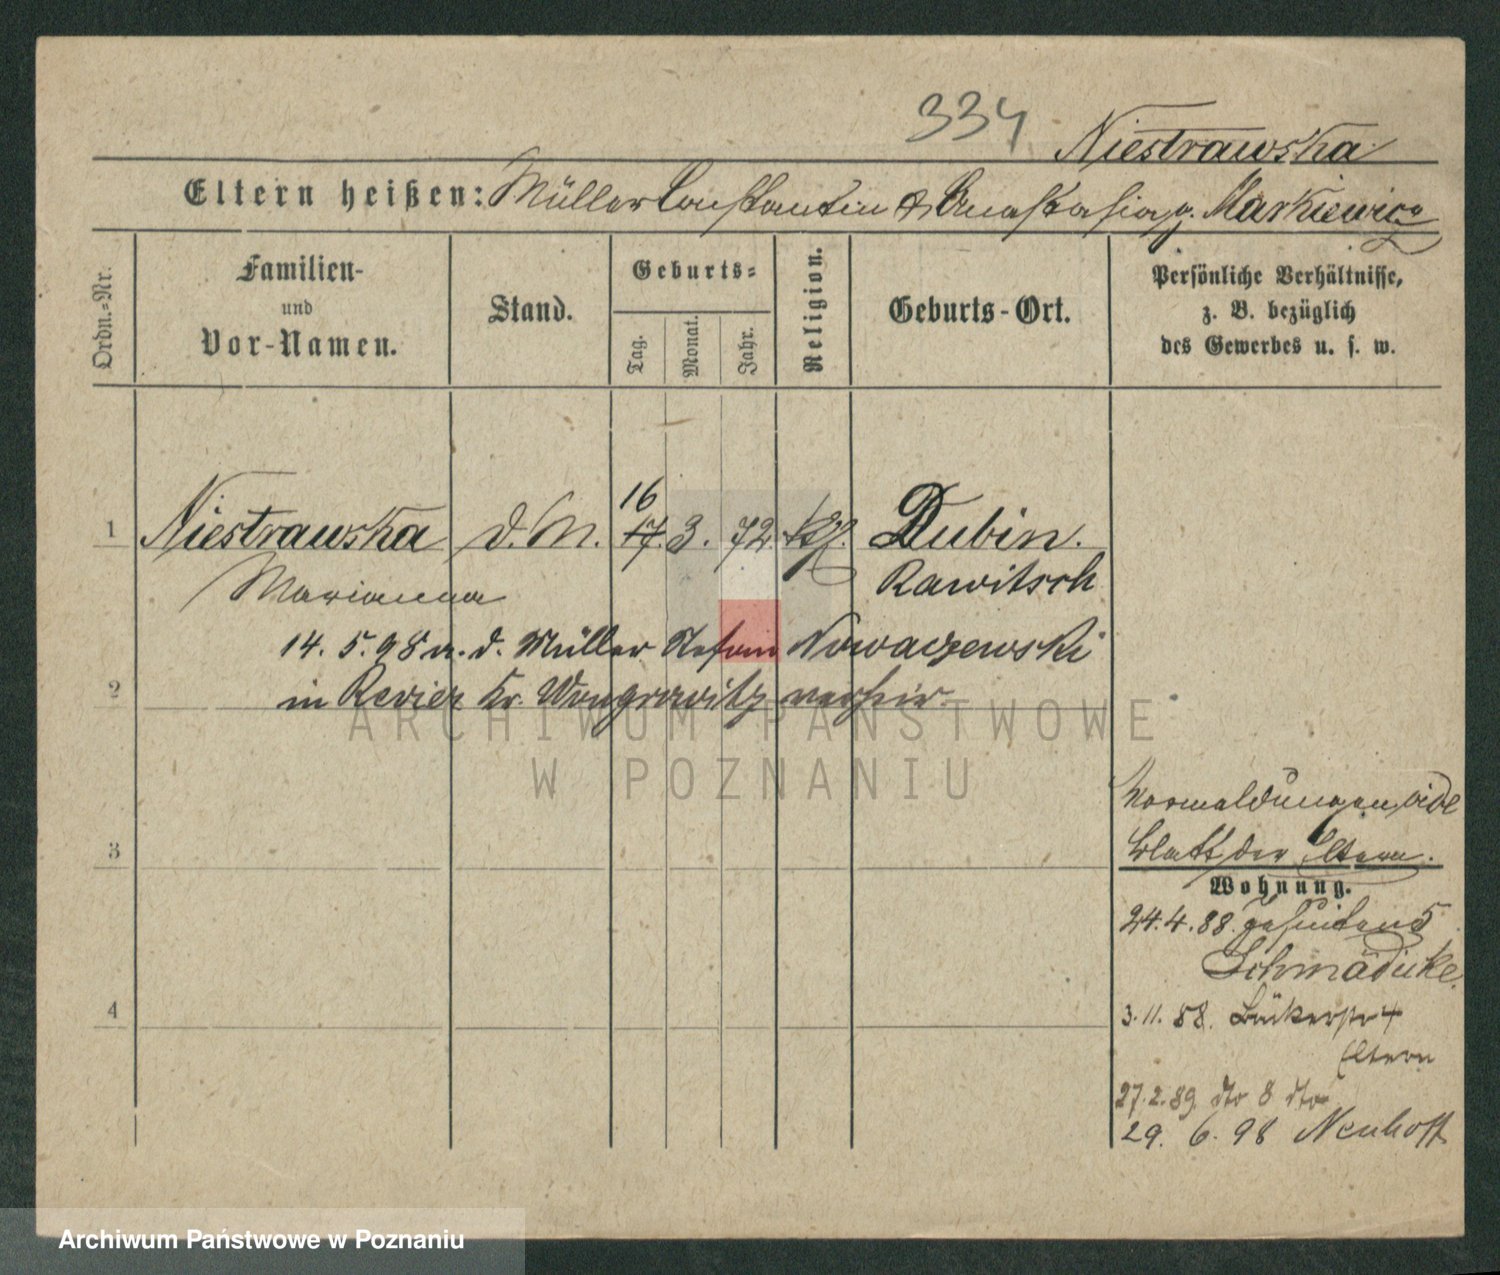 334
Niestrawska
Eltern heißen: Müller Constantin & Anastasia g. Markiewicz
Ordn.-Nr.
Familien-
und
Vor-Namen.
Stand.
Geburts-
Tag.
Monat.
Jahr.
Religion.
Geburts-Ort.
Persönliche Verhältnisse,
z. B. bezüglich
des Gewerbes u. s. w.
16
1 Niestrawska d. M. 17. 3. 72. Dubin.
Marianna Rawitsch
14. 5. 98 m. d. Müller Stefan Nowaczewski
2 in Revier Kr. Wongrowitz verheir.
ARCHIWUM PAŃSTWOWE
W POZNANIU
Vormeldungen vide
3 Blatt der Eltern.
Wohnung.
24.4.88. Jesuitens 5
Schmädicke.
4 3.11.88. Bäckerstr 4
Eltern
27.2.89. dto 8 dto
29. 6. 98 Neuhoff
Archiwum Państwowe w Poznaniu